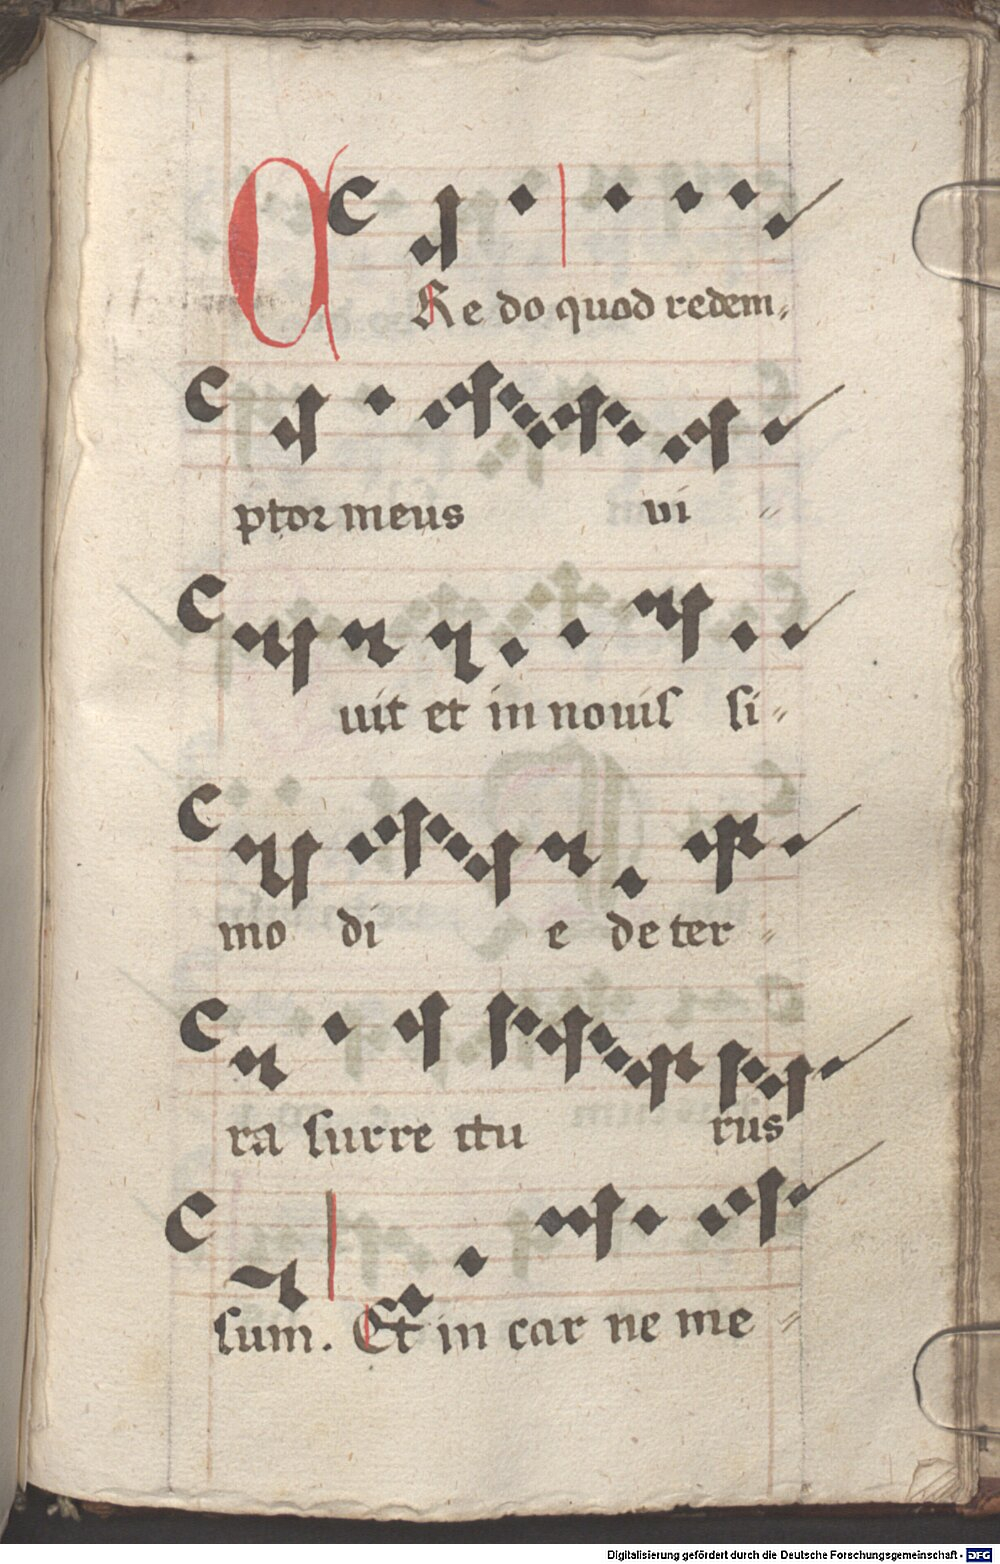 CRe do quod redem-
ptor meus vi -
uit et in nouis si-
mo di e de ter -
ra surre ctu rus
sum. Et in car ne me -
Digitalisierung gefördert durch die Deutsche Forschungsgemeinschaft - DFG